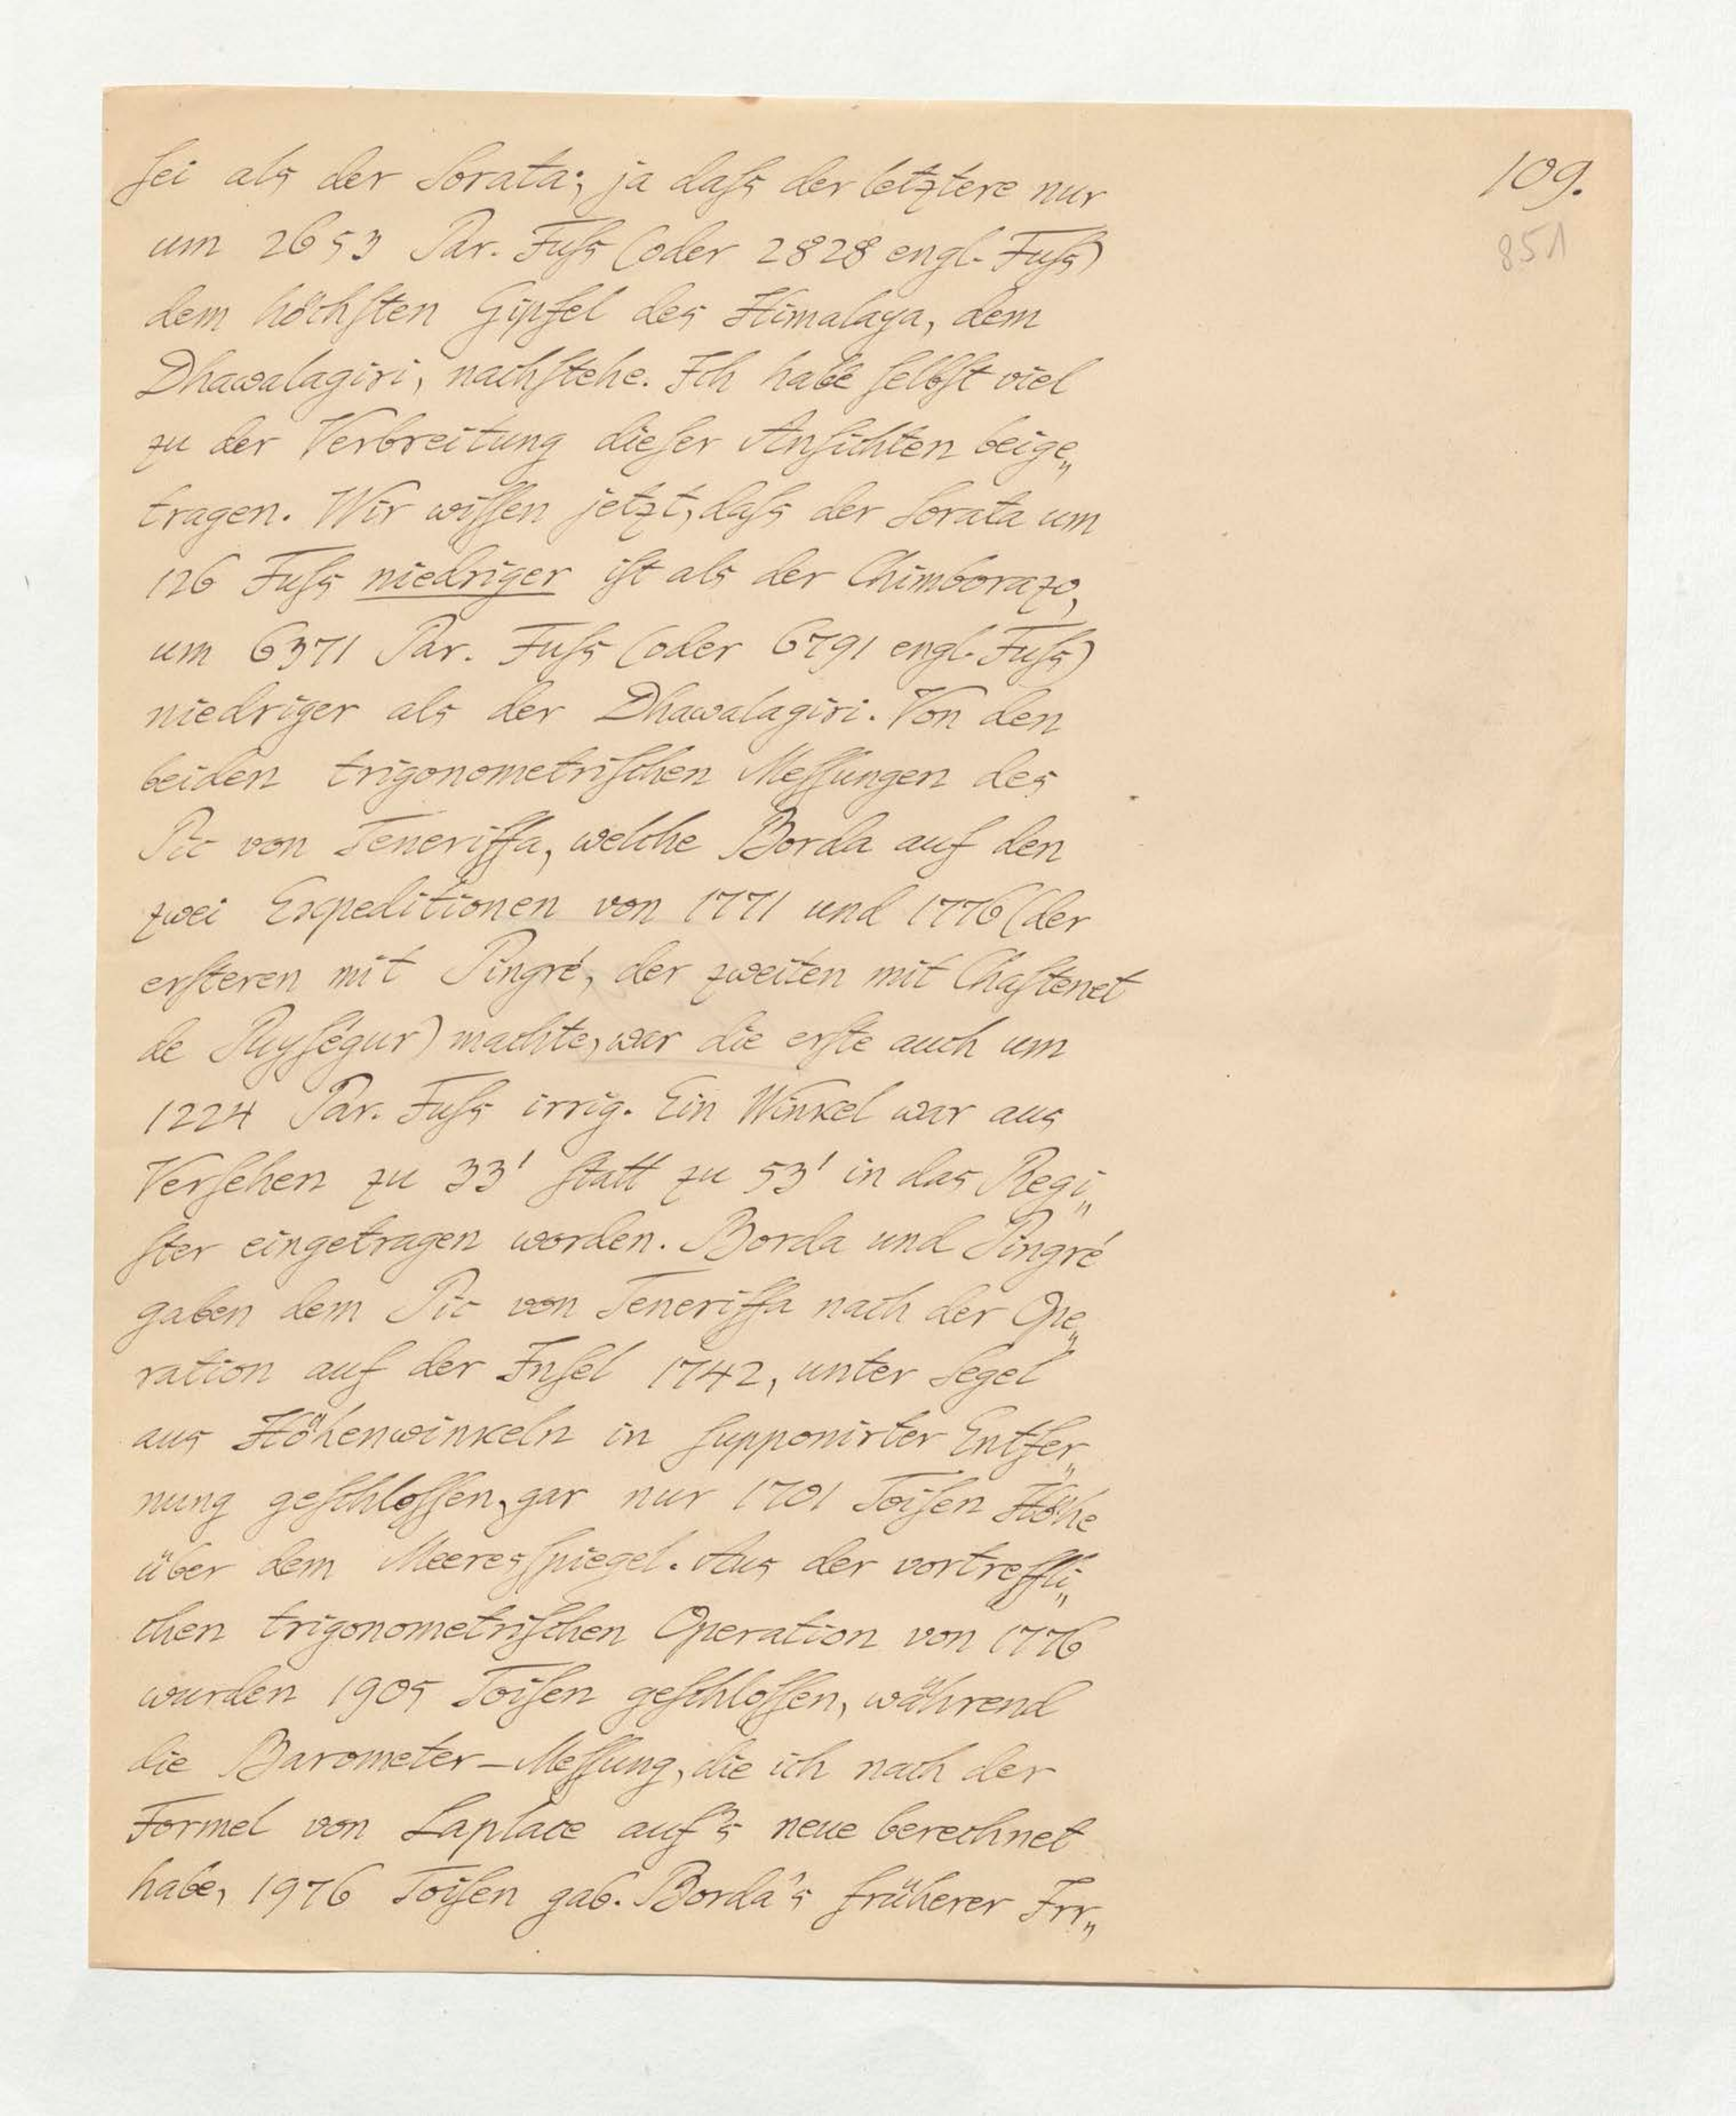 109.
851
ſei als der Sorata; ja daſs der letztere nur
um 2653 Par. Fuſs (oder 2828 engl. Fuſs)
dem höchſten Gipfel des Himalaya, dem
Dhawalagiri, nachſtehe. Ich habe ſelbſt viel
zu der Verbreitung dieſer Anſichten beige„
tragen. Wir wiſſen jetzt, daſs der Sorata um
126 Fuſs niedriger iſt als der Chimborazo,
um 6371 Par. Fuſs (oder 6791 engl. Fuſs)
niedriger als der Dhawalagiri. Von den
beiden trigonometriſchen Meſſungen des
Pic von Teneriffa, welche Borda auf den
zwei Expeditionen von 1771 und 1776 (der
erſteren mit Pingré, der zweiten mit Chaſtenet
de Puyſégur) machte, war die erſte auch um
1224 Par. Fuſs irrig. Ein Winkel war aus
Verſehen zu 33' ſtatt zu 53' in das Regi„
ſter eingetragen worden. Borda und Pingré
gaben dem Pic von Teneriffa nach der Ope„
ration auf der Inſel 1742, unter Segel
aus Höhenwinkeln in ſupponirter Entfer„
nung geſchloſſen, gar nur 1701 Toiſen Höhe
über dem Meeresſpiegel. Aus der vortreffli„
chen trigonometriſchen Operation von 1776
wurden 1905 Toiſen geſchloſſen, während
die Barometer-Meſſung, die ich nach der
Formel von Laplace auf's neue berechnet
habe, 1976 Toiſen gab. Borda's früherer Irr„